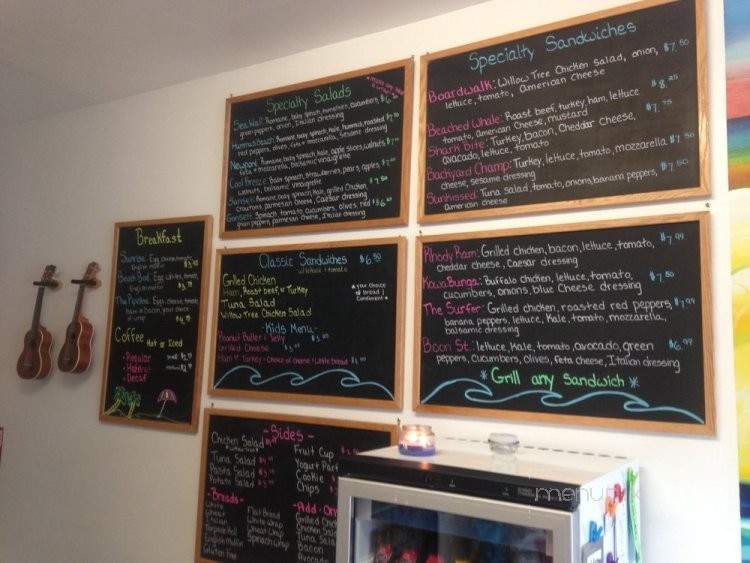 Breakfast
Sunrise: Egg
Beach Ball: Egg
The Pipeline: Egg
Coffee Hot or Iced
• Regular
• Hazelnut
• Decaf
Specialty Salads
Sea Wall: Romaine, baby spinach, tomatoes, cucumbers,
green peppers, onion, Italian dressing
Romaine, baby spinach, Kale, hummus, roasted
red peppers, olives, feta + mozzarella, sesame dressing
Newport: Romaine, baby spinach, Kale, apple slices, walnuts,
feta + mozzarella, balsamic vinaigrette
Cool Breeze: Baby spinach, strawberries, pears, apples,
walnuts, balsamic vinaigrette
Romaine, baby spinach, Kale, grilled chicken,
croutons, parmesan cheese, Caesar dressing
Gansett: Spinach, tomato, cucumbers, olives, red +
green peppers, parmesan cheese, Italian dressing
Classic Sandwiches $6.50
w/ lettuce + tomato
Grilled Chicken
Ham, Roast beef, or Turkey
Tuna Salad
Willow Tree Chicken Salad
* your choice
of bread +
Condiment *
- Kids Menu -
Peanut Butter + Jelly
Grilled Cheese
Ham or Turkey + Choice of cheese + white bread
- Sides -
Chicken Salad
Tuna Salad
Pasta Salad
Potato Salad
Fruit Cup
Yogurt
Cookie
Chips
- Breads -
White
Wheat
Italian
English Muffin
Gluten Free
Flat Bread
White Wrap
Wheat Wrap
Spinach Wrap
- Add-On
Grilled
Chicken
Tuna
Bacon
Avocado
Specialty Sandwiches
Boardwalk: Willow Tree Chicken salad, onion, $7.50
lettuce, tomato, American cheese
Beached Whale: Roast beef, turkey, ham, lettuce $8.25
tomato, American Cheese, mustard
Shark Bite: Turkey, bacon, Cheddar cheese, $7.75
avocado, lettuce, tomato
Backyard Champ: Turkey, lettuce, tomato, mozzarella $7.50
cheese, sesame dressing
Sunkissed: Tuna salad, tomato, onions, banana peppers, $7.50
American cheese
Rhody Ram: Grilled chicken, bacon, lettuce, tomato, $7.99
cheddar cheese, Caesar dressing
KowaBunga: Buffalo chicken, lettuce, tomato, $7.50
cucumbers, onions, blue Cheese dressing
The Surfer: Grilled chicken, roasted red peppers, $7.99
banana peppers, lettuce, Kale, tomato, mozzarella,
balsamic dressing
Boon St: lettuce, Kale, tomato, avocado, green $6.99
peppers, Cucumbers, olives, feta cheese, Italian dressing
* Grill any Sandwich *